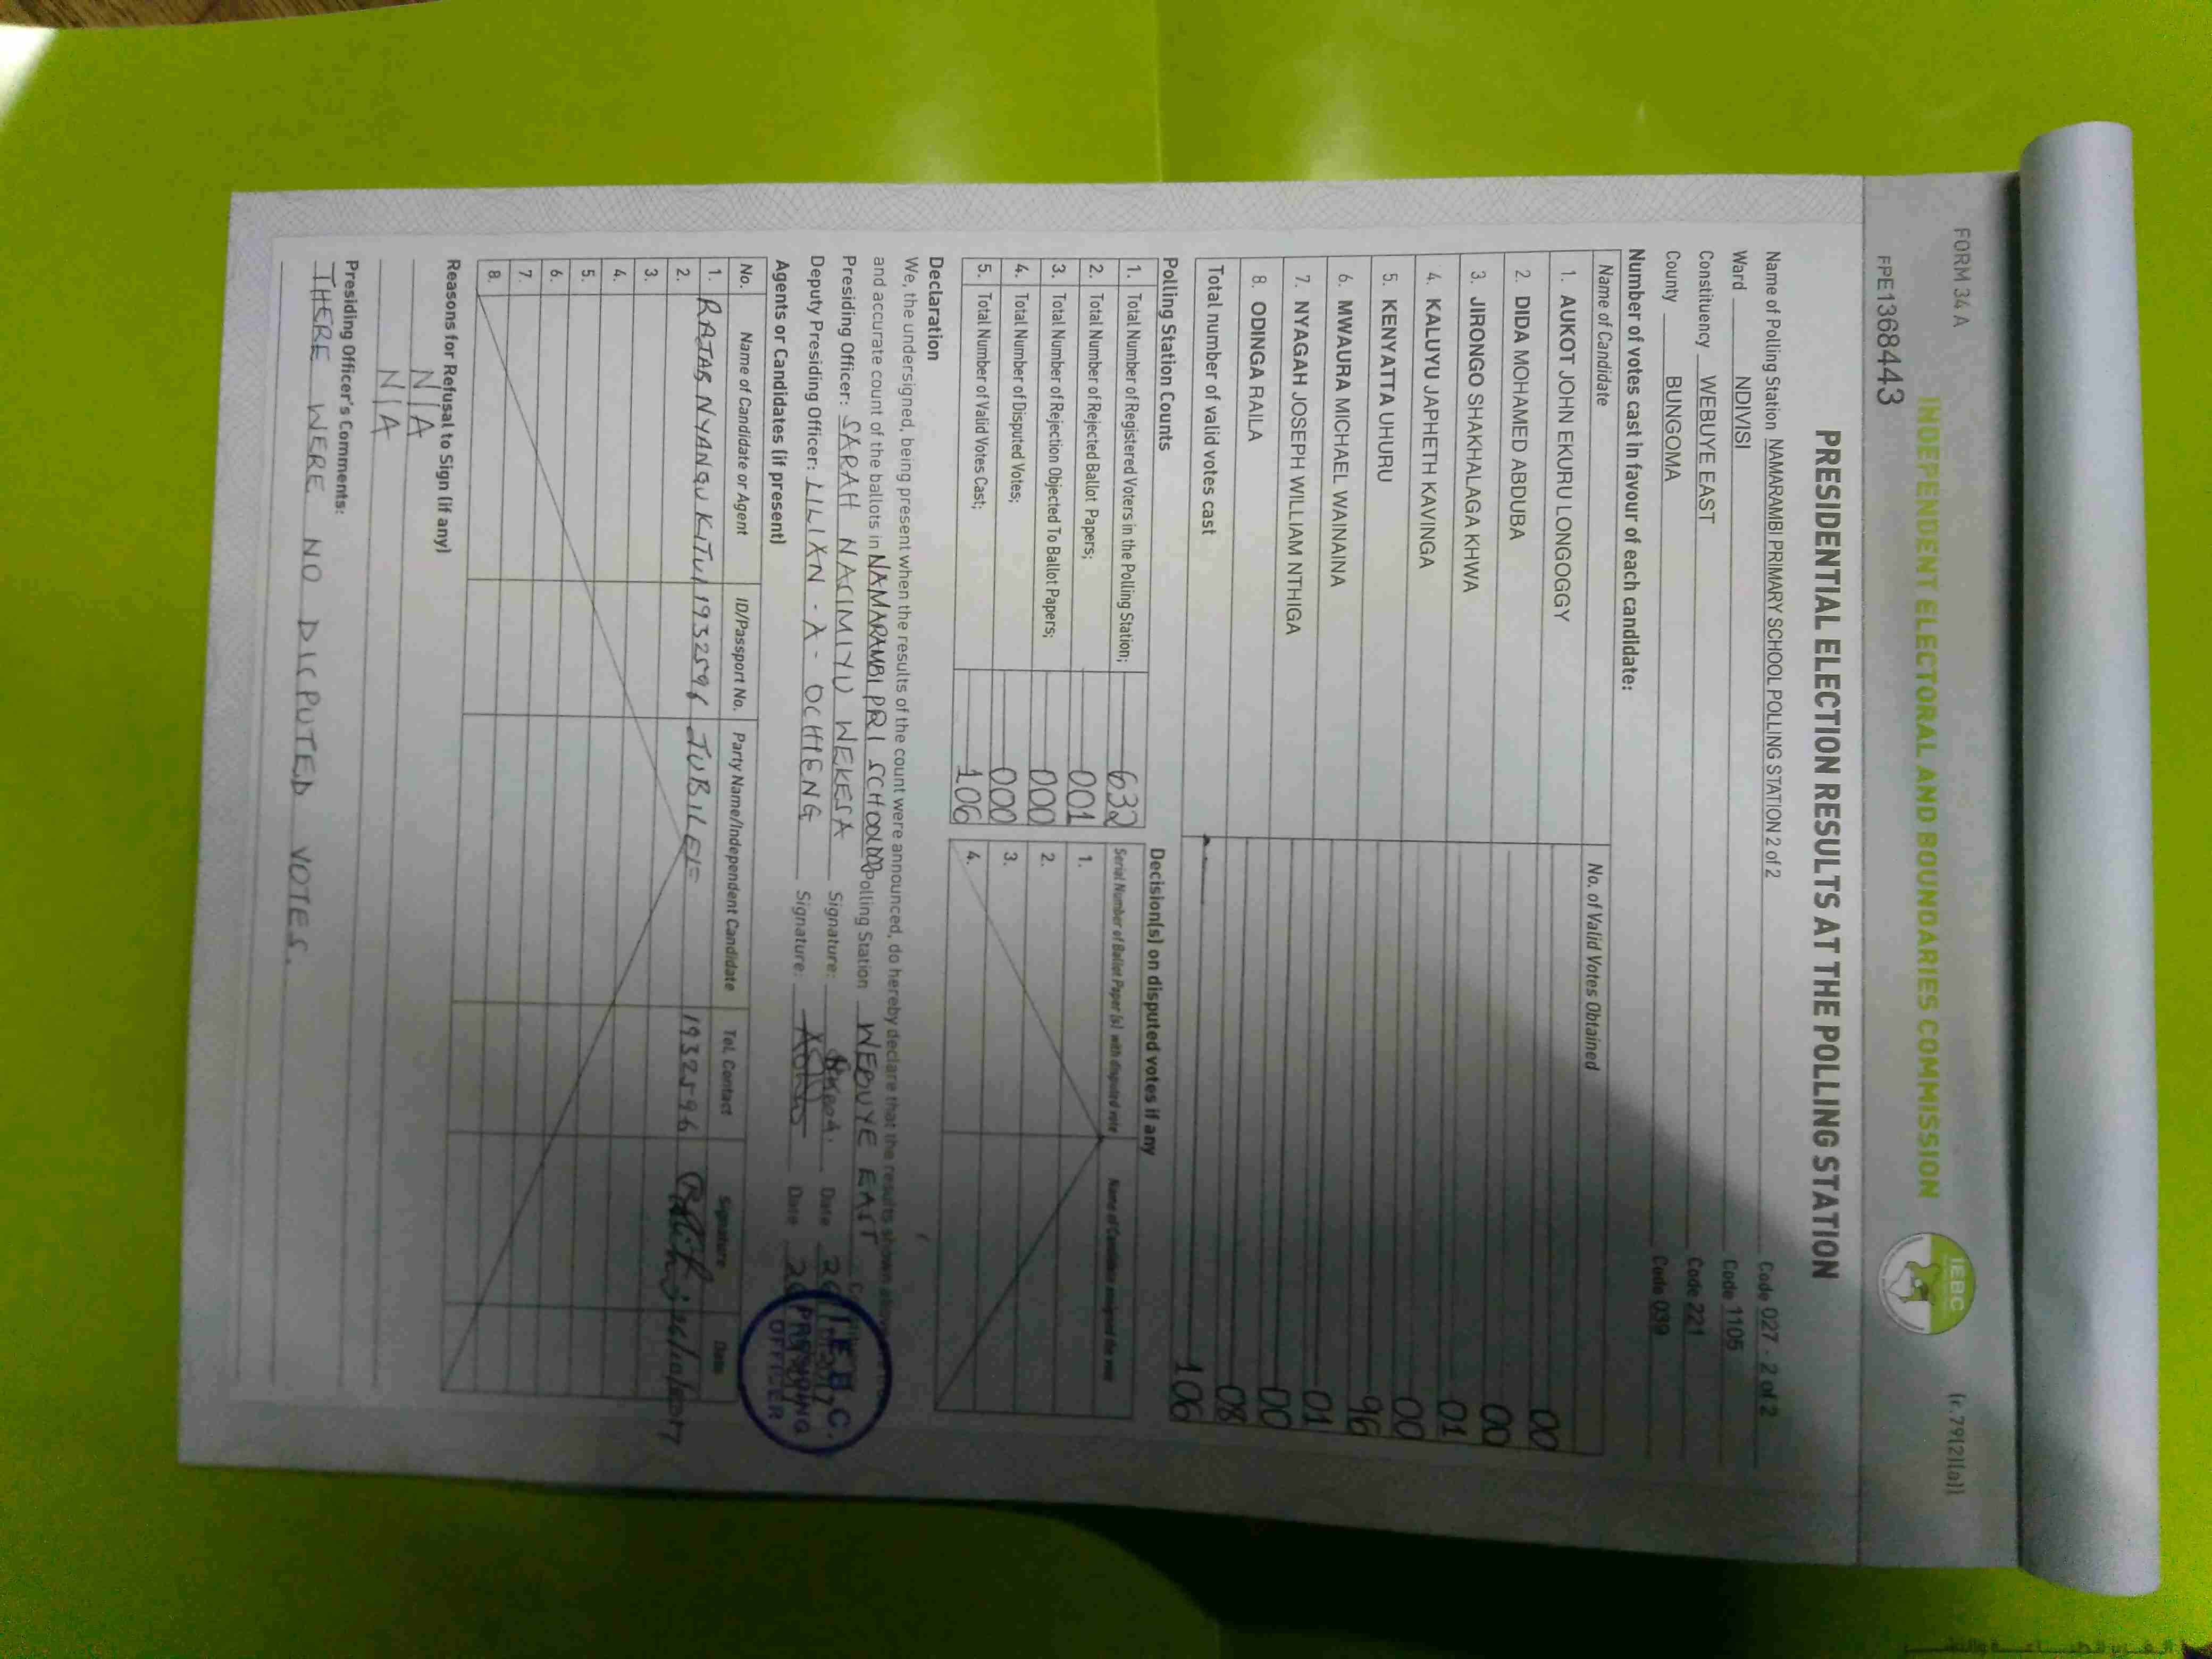 FORM 34 A
(r.79(2)(a))
INDEPENDENT ELECTORAL AND BOUNDARIES COMMISSION
IEBC
FPE1368443
PRESIDENTIAL ELECTION RESULTS AT THE POLLING STATION
Name of Polling Station NAMARAMBI PRIMARY SCHOOL POLLING STATION 2 of 2 Code 027 - 2 of 2
Ward NDIVISI Code 1105
Constituency WEBUYE EAST Code 221
County BUNGOMA Code 039
Number of votes cast in favour of each candidate:
Name of Candidate No. of Valid Votes Obtained
1. AUKOT JOHN EKURU LONGOGGY 00
2. DIDA MOHAMED ABDUBA 00
3. JIRONGO SHAKHALAGA KHWA 01
4. KALUYU JAPHETH KAVINGA 00
5. KENYATTA UHURU 96
6. MWAURA MICHAEL WAINAINA 01
7. NYAGAH JOSEPH WILLIAM NTHIGA 00
8. ODINGA RAILA 08
Total number of valid votes cast 106
Polling Station Counts
1. Total Number of Registered Voters in the Polling Station; 632
2. Total Number of Rejected Ballot Papers; 001
3. Total Number of Rejection Objected To Ballot Papers; 000
4. Total Number of Disputed Votes; 000
5. Total Number of Valid Votes Cast; 106
Decision(s) on disputed votes if any
Serial Number of Ballot Paper(s) with disputed vote Name of Candidate assigned the vote
1.
2.
3.
4.
Declaration
We, the undersigned, being present when the results of the count were announced, do hereby declare that the results shown above
and accurate count of the ballots in NAMARAMBI PRI SCHOOL Polling Station WEBUYE EAST
Presiding Officer: SARAH NACIMIYU WEKESA Signature: Date
Deputy Presiding Officer: LILIAN - A - OCHIENG Signature: Date
I.E.B.C.
PRESIDING
OFFICER
Agents or Candidates (if present)
No. Name of Candidate or Agent ID/Passport No. Party Name/Independent Candidate Tel. Contact Signature Date
1. RAJAB NYANGU KITUI 19325596 JUBILEE 19325596 26/10/2017
2.
3.
4.
5.
6.
7.
8.
Reasons for Refusal to Sign (if any)
N/A
N/A
Presiding Officer's Comments:
THERE WERE NO DICPUTED VOTES.